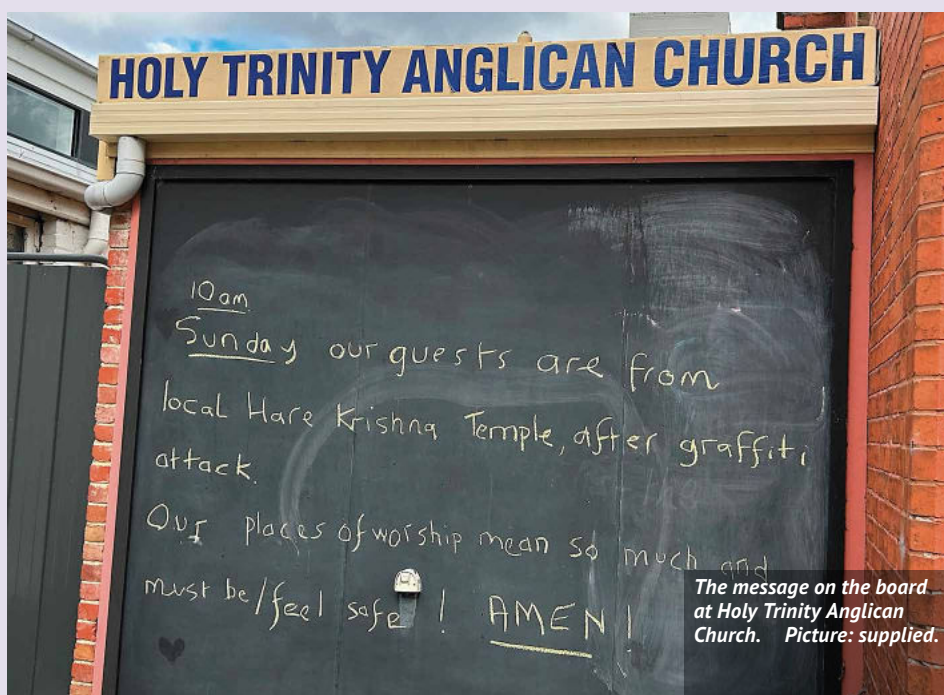 HOLY TRINITY ANGLICAN CHURCH
10am
Sunday our guests are from
local Hare Krishna Temple, after graffiti
attack.
Our places of worship mean so much and
must be/feel safe! AMEN!
The message on the board
at Holy Trinity Anglican
Church. Picture: supplied.